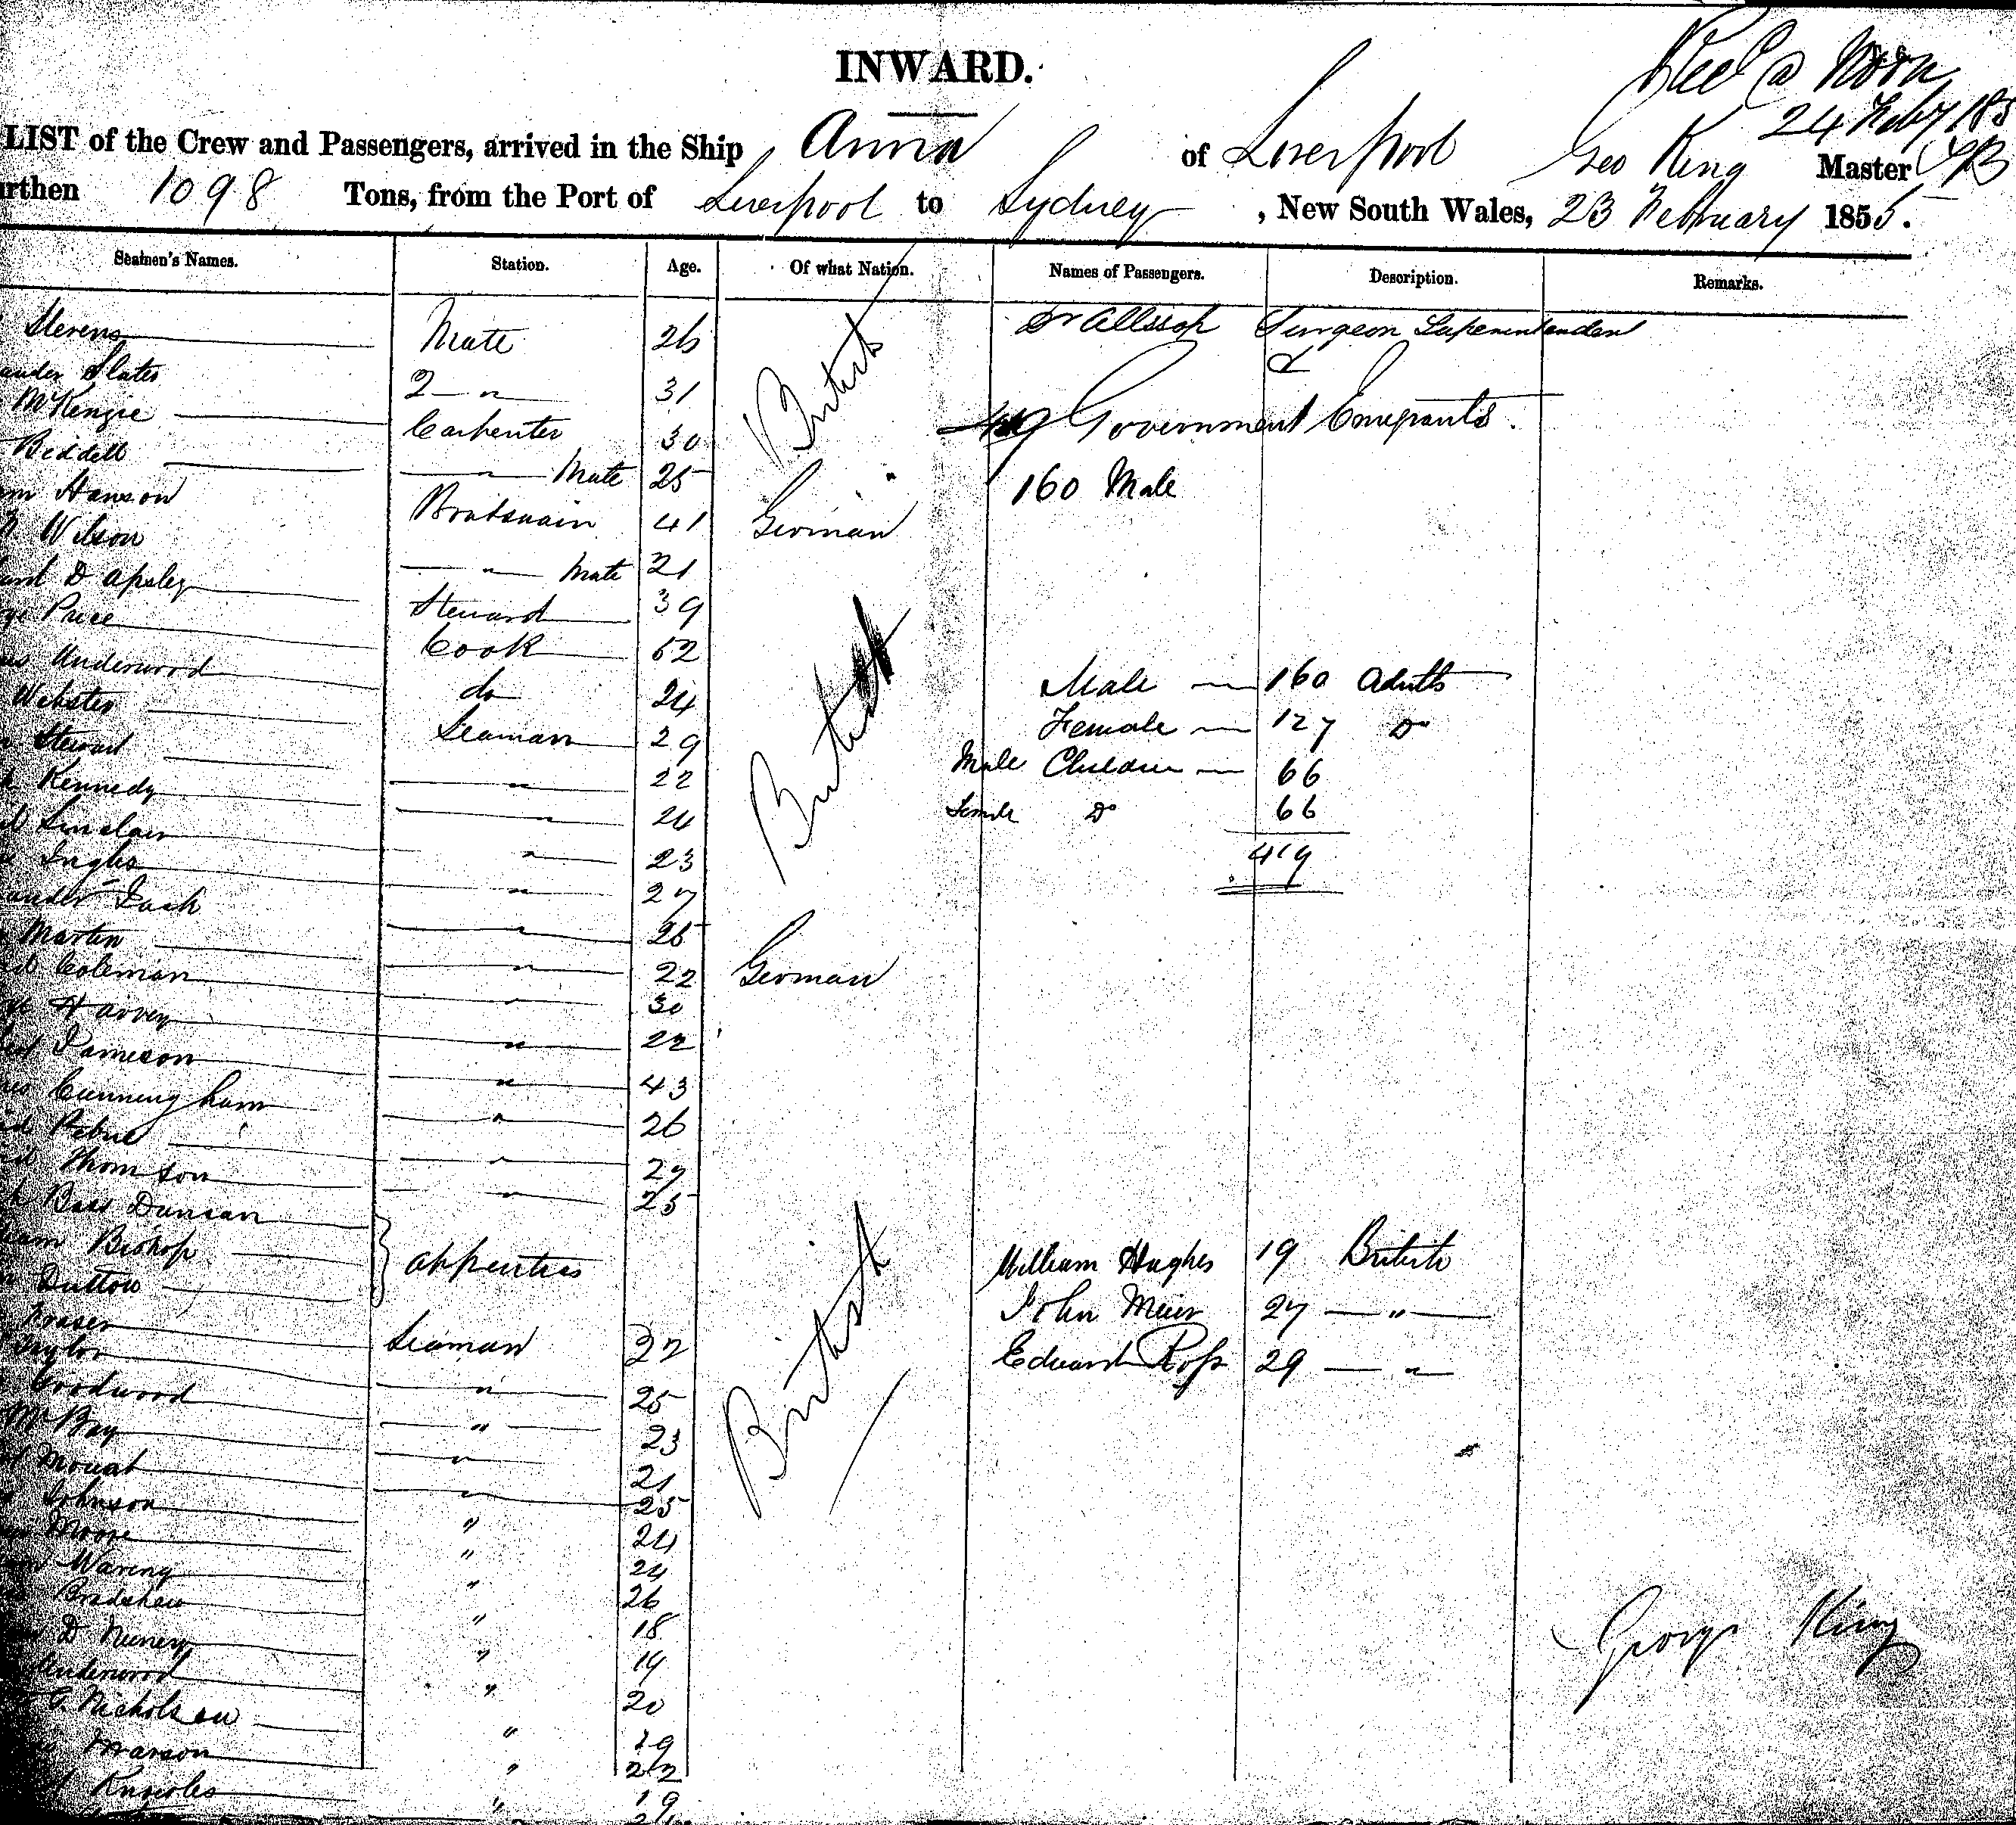 INWARD.
Recd @ Noon
24 Feby 185
LIST of the Crew and Passengers, arrived in the Ship Anna of Liverpool Geo King Master
rthen 1098 Tons, from the Port of Liverpool to Sydney, New South Wales, 23 February 1855.
Seamen's Names. Station. Age. Of what Nation. Names of Passengers. Description. Remarks.
Stevens Mate 26 British Dr Allsop Surgeon Superintendent
ander Slater 2 — " — 31 &
McKenzie Carpenter 30 419 Government Emigrants.
Biddell — " — Mate 25 160 Male
Hanson Boatswain 41 German
Wilson — " — Mate 21
D Apsley Steward 39
Price Cook 52 British
Underwood do 24 Male — 160 Adults
Webster Seaman 29 Female — 127 Do
Stewart " 22 Male Children — 66
Kennedy " 24 Female Do 66
Sinclair " 23 419
Ingles " 27
ander Jack " 25
Martin " 22 German
Coleman " 30
Harvey " 22
Jameson " 43
Cunningham " 26
" 27
Thomson " 25
Ross Duncan
iam Bishop apprentices British William Hughes 19 British
Dutton John Meier 27 — " —
Fraser Seaman 22 Edward Ross 29 — "
Taylor " 25
Goodwood " 23
McBay " 21
Mouat " 25
Johnson " 24
Moore " 24
Waring " 26
Bradshaw " 18
D " 19
Underwood " 20
G. Nicholson " 19
" 22
Knowles " 19
George King